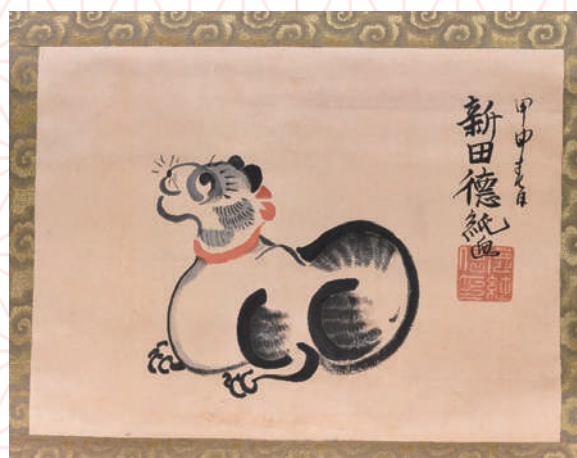 甲申春日
新田德純画